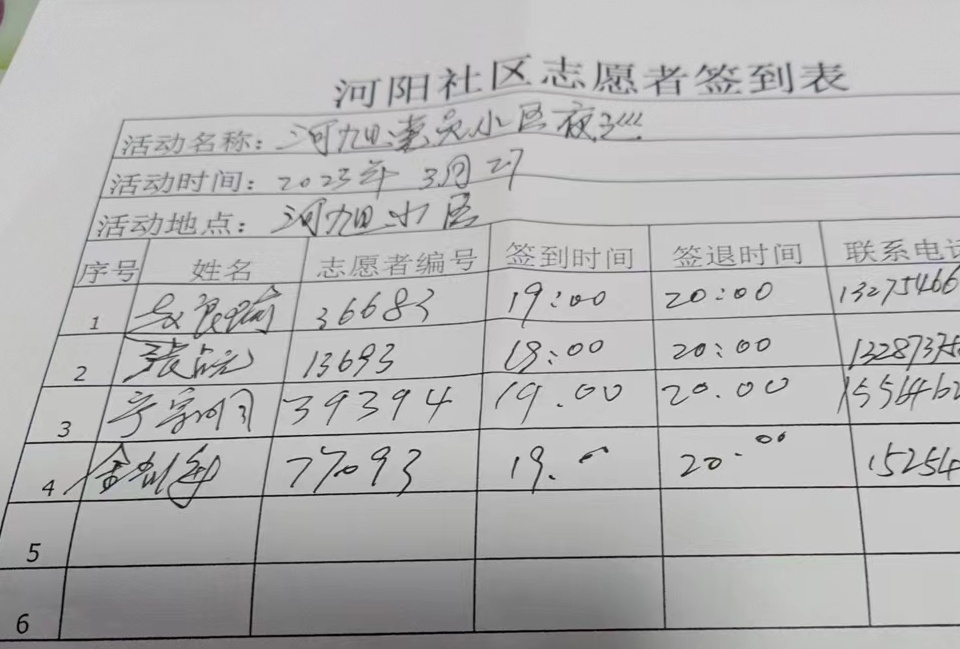 河阳社区志愿者签到表
活动名称: 河旭小区夜
活动时间: 2023年 3月27
活动地点: 河旭小区
序号 姓名 志愿者编号 签到时间 签退时间 联系电话
1 36683 19:00 20:00 13275466
2 13693 19:00 20:00 13287375
3 39394 19.00 20.00 1554462
4 77093 19. 20.00 15254
5
6